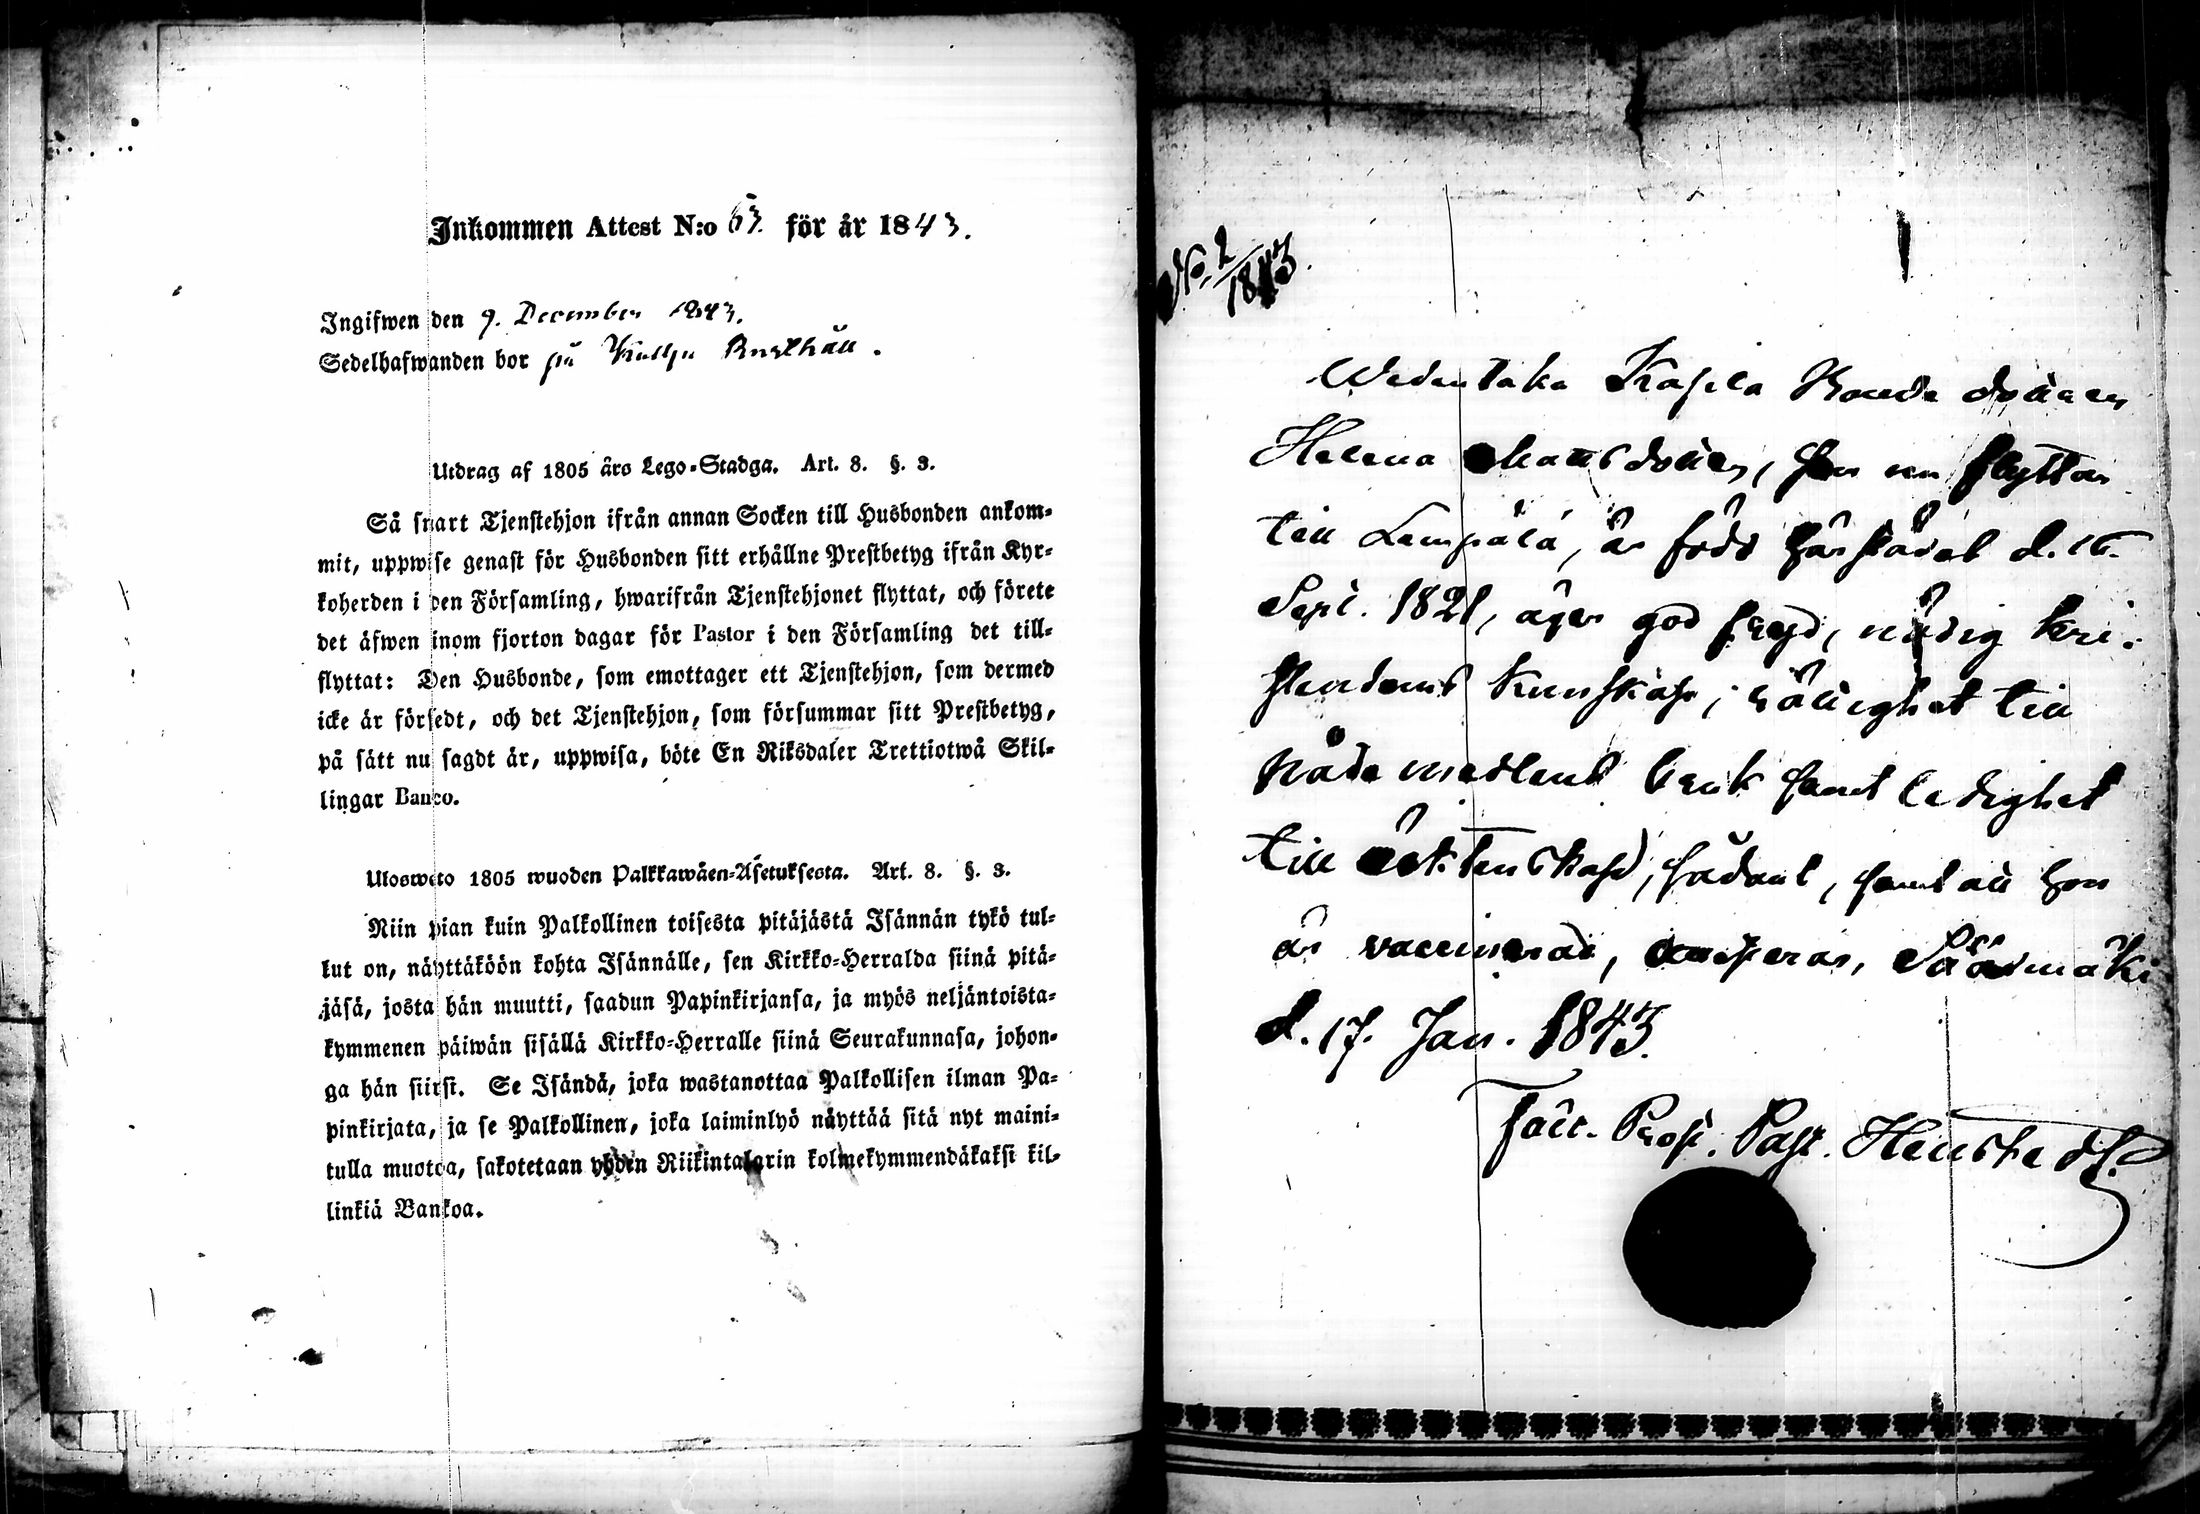 Inkommen Attest N:o 63. för år 1843.
Ingifwen den 9. December 1843.
Sedelhafwanden bor på Kulju Rusthåll.
Utdrag af 1805 års Lego-Stadga. Art. 8. §. 3.
Så snart Tjenstehjon ifrån annan Socken till Husbonden ankom-
mit, uppwise genast för Husbonden sitt erhållne Prestbetyg ifrån Kyr-
koherden i den Församling, hwarifrån Tjenstehjonet flyttat, och förete
det äfwen inom fjorton dagar för Pastor i den Församling det till-
flyttat: Den Husbonde, som emottager ett Tjenstehjon, som dermed
icke är försedt, och det Tjenstehjon, som försummar sitt Prestbetyg,
på sätt nu sagdt är, uppwisa, böte En Riksdaler Trettiotwå Skil-
lingar Banco.
Ulosweto 1805 wuoden Palkkawäen-Asetuksesta. Art. 8. §. 3.
Niin pian kuin Palkollinen toisesta pitäjästä Isännän tykö tul-
lut on, näyttäköön kohta Isännälle, sen Kirkko-Herralda siinä pitä-
jäsä, josta hän muutti, saadun Papinkirjansa, ja myös neljäntoista-
kymmenen päiwän sisällä Kirkko-Herralle siinä Seurakunnasa, johon-
ga hän siirsi. Se Isändä, joka wastanottaa Palkollisen ilman Pa-
pinkirjata, ja se Palkollinen, joka laiminlyö näyttää sitä nyt maini-
tulla muotoa, sakotetaan yhden Riikintalarin kolmekymmendäkaksi kil-
linkiä Bankoa.
No. 2/1843.
Wedentaka Bonde dotteren
Helena Matsdotter, som nu flyttar
till Lempälä, är född härstädes d. 16.
Sept. 1821, äger god frejd, nödig kri-
stendoms kunskap, rättighet till
nådemedlens bruk samt ledighet
till äktenskap, sådant, samt att hon
är vaccinerad, attesteras, Sääxmäki
d. 17. Jan. 1843.
Prost. Past.